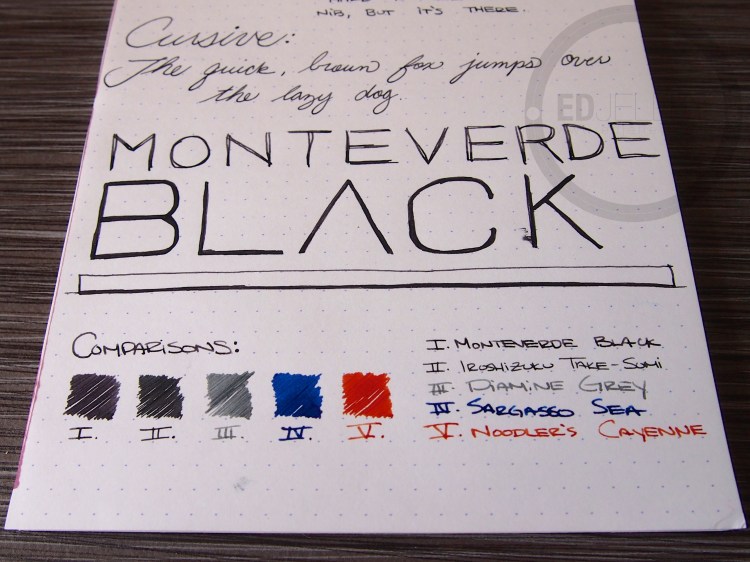 NIB, BUT IT'S THERE.
Cursive:
The quick, brown fox jumps over
the lazy dog.
ED
MONTEVERDE
BLACK
COMPARISONS:
I. MONTEVERDE BLACK
II. IROSHIZUKU TAKE-SUMI
III. DIAMINE GREY
IV. SARGASSO SEA
V. NOODLER'S CAYENNE
I. II. III. IV. V.